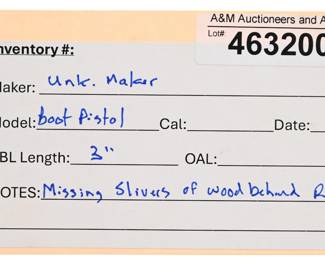 A&M Auctioneers and A
Lot# 463200
nventory #:
Maker: Unk. Maker
Model: boot Pistol Cal: Date:
BL Length: 3" OAL:
OTES: Missing Slivers of wood behand R